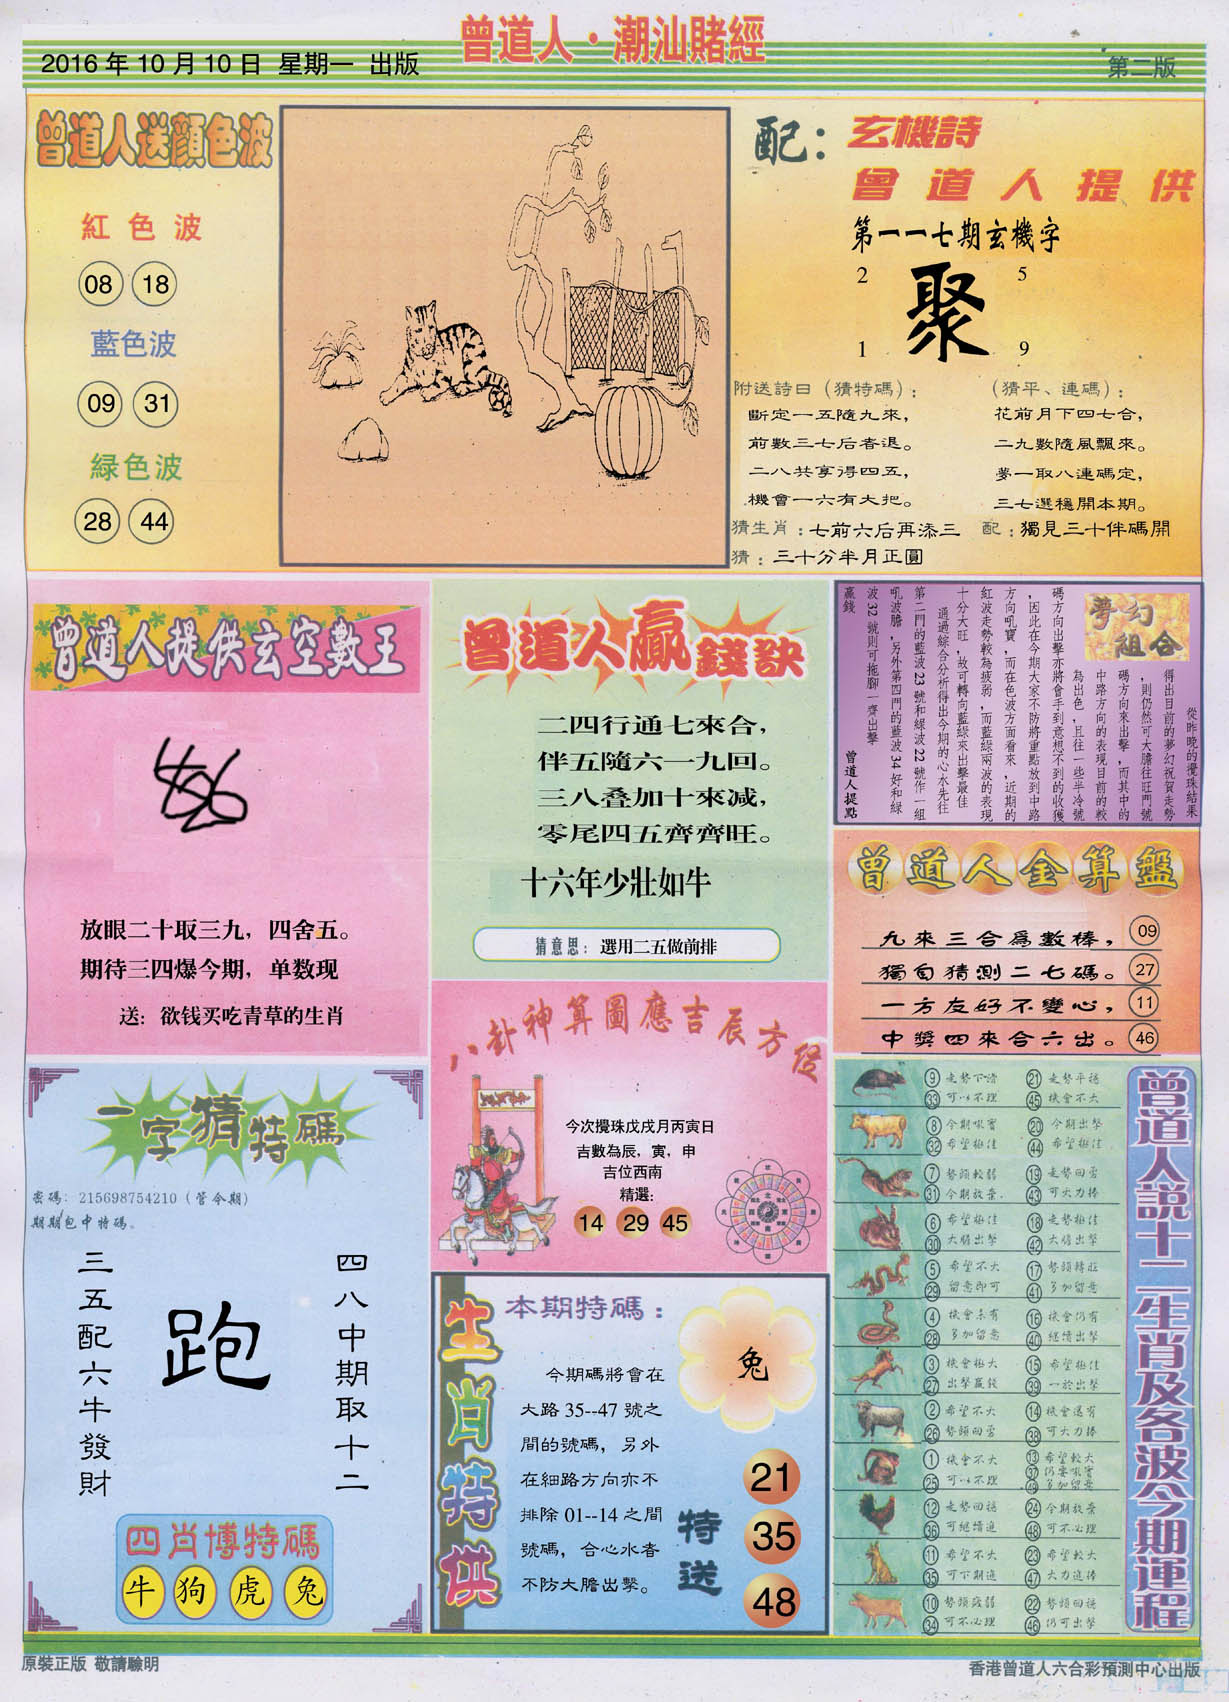 曾道人·潮汕賭經
2016年10月10日 星期一 出版
第二版
曾道人送顏色波
紅色波
08 18
藍色波
09 31
緑色波
28 44
配：玄機詩
曾道人提供
第一一七期玄機字
2 5
聚
1 9
附送詩曰（猜特碼）：
斷定一五隨九來，
前數三七后者退。
二八共享得四五，
機會一六有大把。
（猜平、連碼）：
花前月下四七合，
二九數隨風飄來。
夢一取八連碼定，
三七選穩開本期。
猜生肖：七前六后再添三
配：獨見三十伴碼開
猜：三十分半月正圓
曾道人提供玄空數王
放眼二十取三九，四舍五。
期待三四爆今期，单数现
送：欲钱买吃青草的生肖
曾道人贏錢訣
二四行通七來合，
伴五隨六一九回。
三八叠加十來减，
零尾四五齊齊旺。
十六年少壯如牛
猜意思：選用二五做前排
夢幻
組合
從昨晚的攪珠結果
得出目前的夢幻祝賀走勢
，則仍然可大膽往旺門號
碼方向來出擊，而其中的
中路方向的表現目前的較
為出色，且往一些半冷號
碼方向出擊亦將會手到意想不到的收獲
，因此在今期大家不防將重點放到中路
方向吼寶，而在色波方面看來，近期的
紅波走勢較為疲弱，而藍綠兩波的表現
十分大旺，故可轉向藍綠來出擊最佳
通過綜合分析得出今期的心水先往
第二門的藍波23號和綠波22號作一組
吼波膽，另外第四門的藍波34好和綠
波32號則可拖腳一齊出擊
贏錢
曾道人提點
曾道人金算盤
九來三合爲數棒，09
獨自猜測二七碼。27
一方友好不變心，11
中獎四來合六出。46
八卦神算圖應吉辰方位
今次攪珠戊戌月丙寅日
吉數為辰，寅，申
吉位西南
精選：
14 29 45
一字猜特碼
密碼：215698754210（管今期）
期期包中特碼。
四八中期取十二
跑
三五配六牛發財
四肖博特碼
牛 狗 虎 兔
生肖特供
本期特碼：
兔
今期碼將會在
大路35--47號之
間的號碼，另外
在細路方向亦不
排除01--14之間
號碼，合心水者
不防大膽出擊。
特送
21
35
48
曾道人説十二生肖及各波今期運程
9 走勢下滑 21 走勢平穩
33 可以不理 45 機會不大
8 今期吼實 20 今期出擊
32 希望極佳 44 希望極佳
7 勢頭較弱 19 走勢回勇
31 今期放棄. 43 可大力捧
6 希望極佳 18 走勢極佳
30 大膽出擊 42 大膽出擊
5 希望不大 17 勢頭轉旺
29 留意即可 41 多加留意
4 機會未有 16 機會仍有
28 多加留意 40 繼續出擊
3 機會極大 15 希望極佳
27 出擊贏錢 39 一於出擊
2 希望不大 14 機會還有
26 勢頭回勇 38 可大力捧
1 機會不大 13 希望較大
25 可以不理 37 仍要吼實
49 多加留意
12 走勢回穩 24 今期放棄
36 可繼續追 48 可不必理
11 希望不大 23 希望較大
35 可下期追 47 大力追捧
10 勢頭疲弱 22 勢頭回穩
34 可不必理 46 仍可出擊
原裝正版 敬請驗明
香港曾道人六合彩預測中心出版